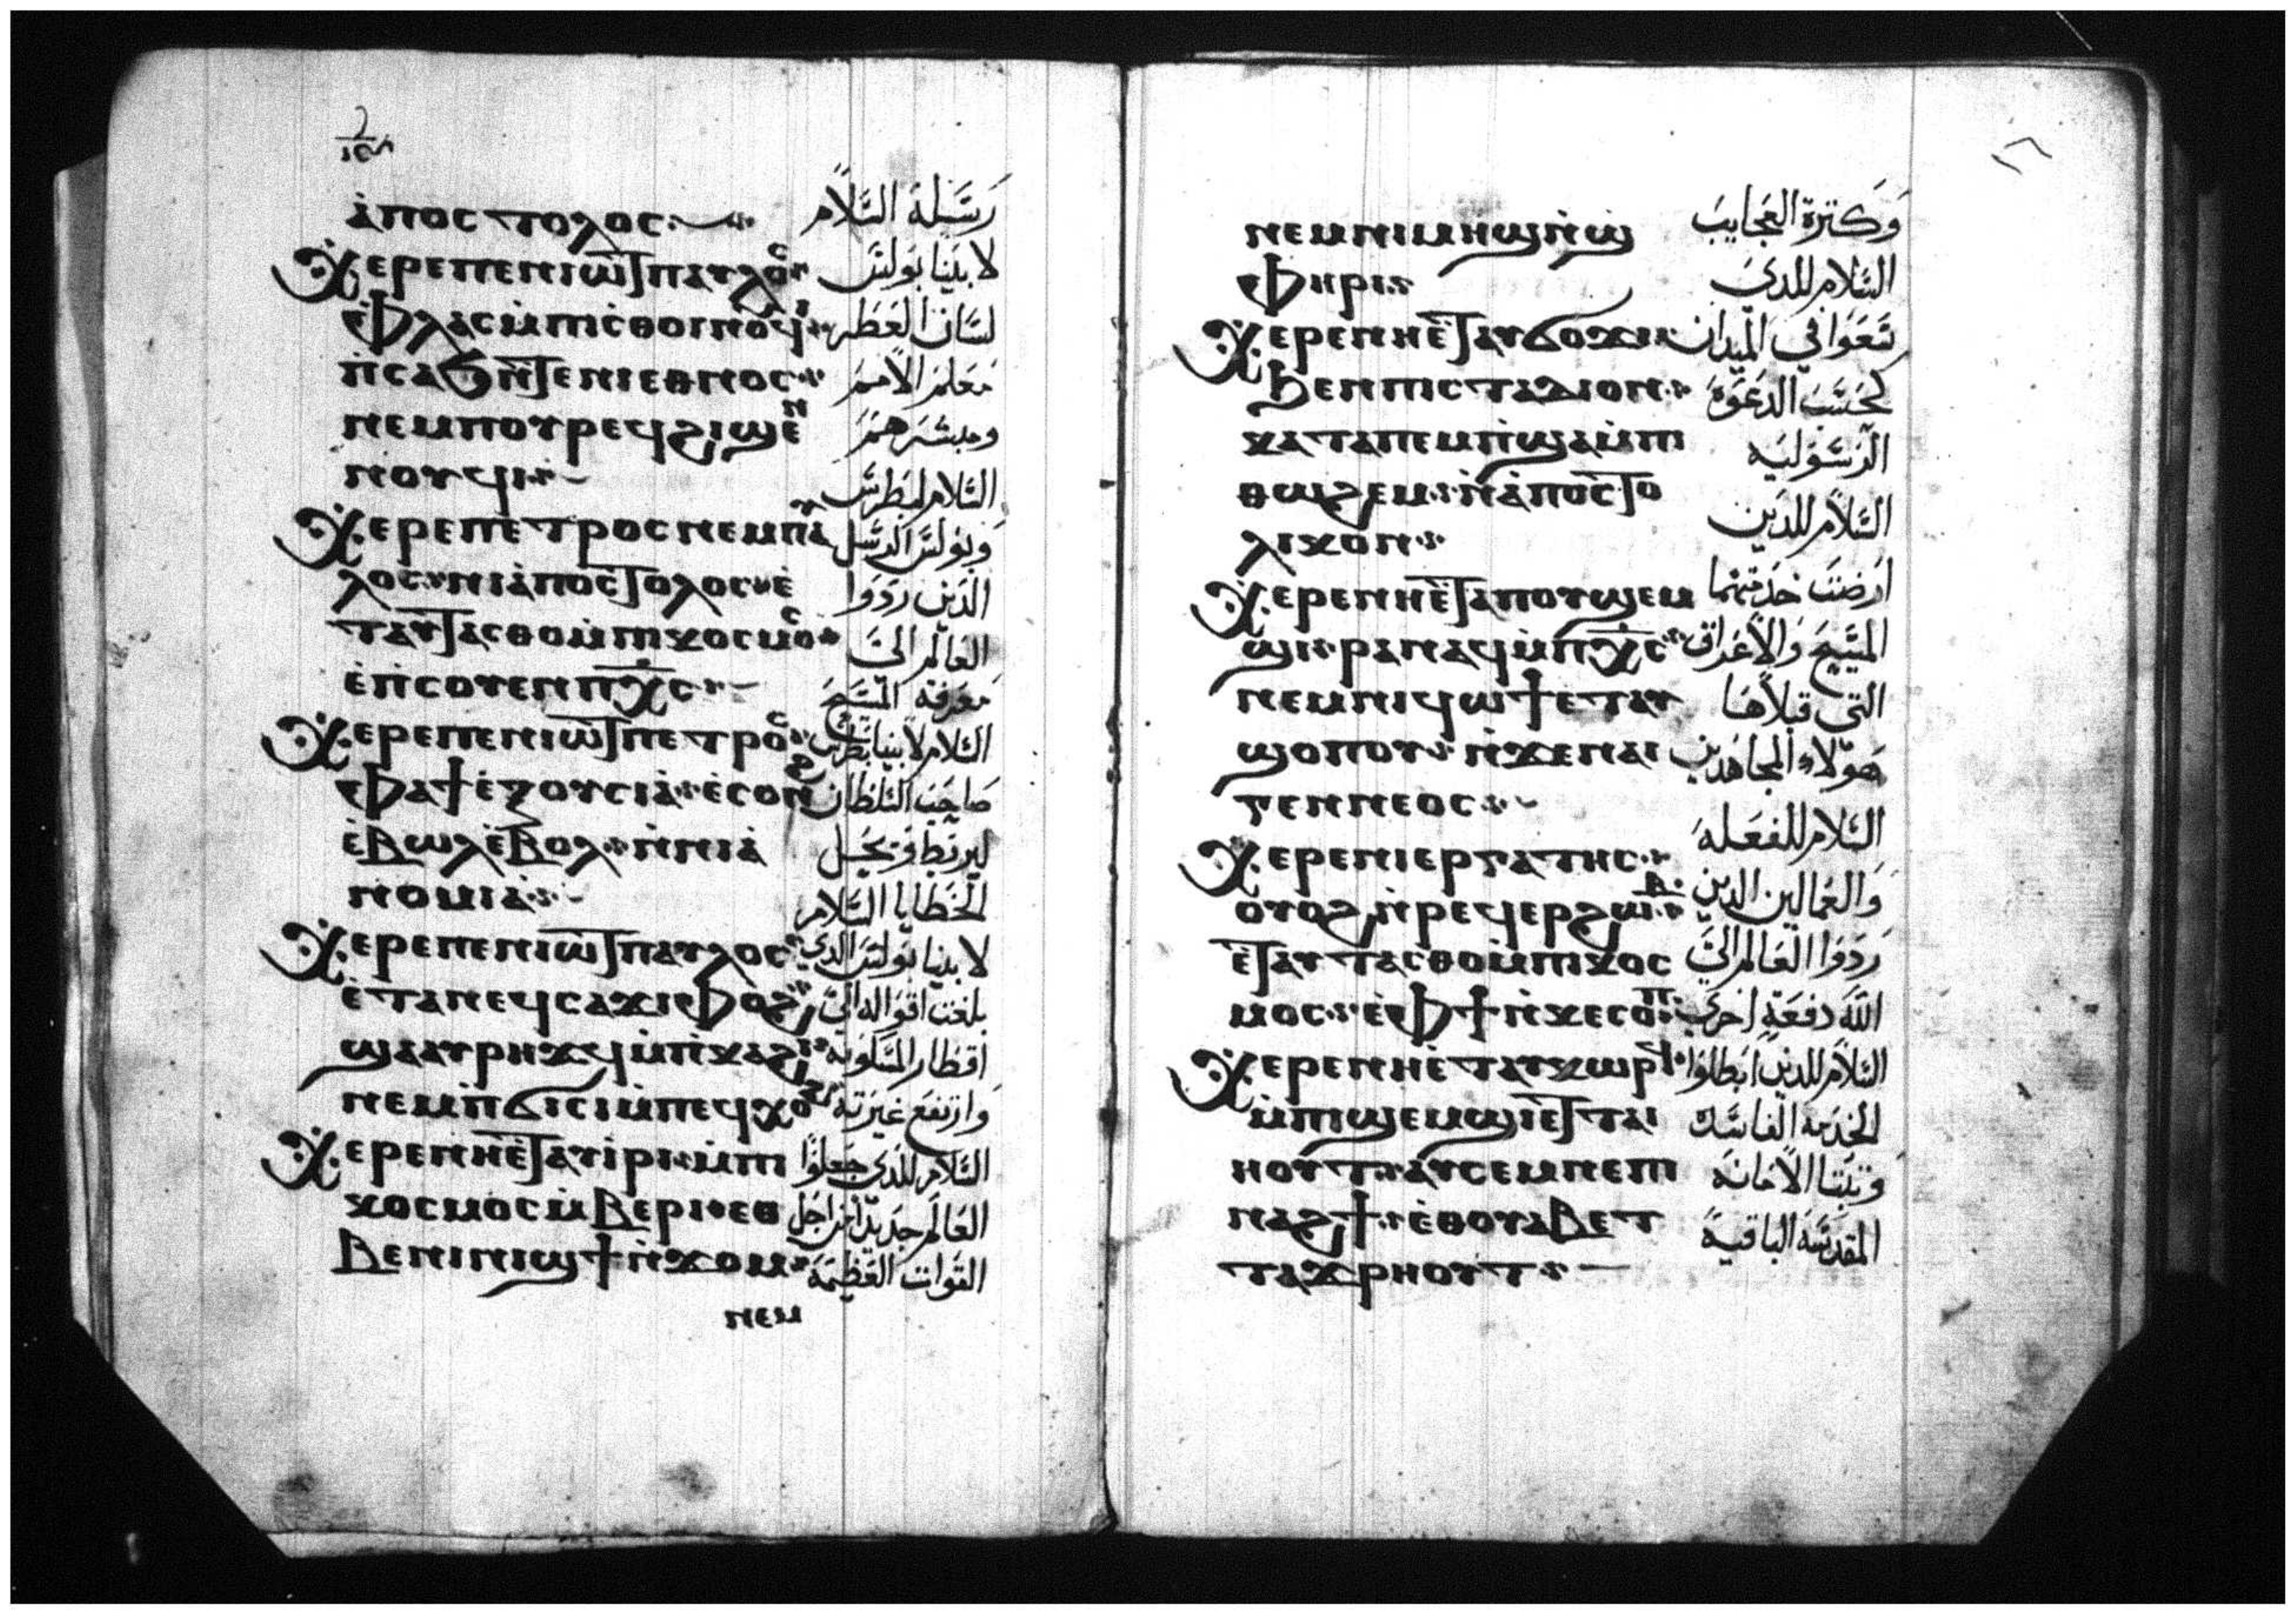 ⲁ̀ⲡⲟⲥⲧⲟⲗⲟⲥ
ⲭⲉⲣⲉⲡⲉⲛⲓⲱⲧⲡⲁⲩⲗⲟⲥ
ⲫⲗⲁⲥⲙ̀ⲡⲓⲥⲑⲟⲓⲛⲟⲩϥⲓ
ⲛ̀ⲥⲁϧⲛ̀ⲧⲉⲛⲓⲉⲑⲛⲟⲥ
ⲛⲉⲙⲡⲟⲩⲣⲉϥϩⲓϣⲉⲛ
ⲛⲟⲩϥⲓ
ⲭⲉⲣⲉⲡⲉⲧⲣⲟⲥⲛⲉⲙⲡⲁⲩ
ⲗⲟⲥⲛⲓⲁ̀ⲡⲟⲥⲧⲟⲗⲟⲥⲉ̀
ⲧⲁⲩⲧⲁⲥⲑⲟⲙ̀ⲡⲓⲕⲟⲥⲙⲟⲥ
ⲉ̀ⲡⲥⲟⲩⲉⲛⲡⲭ̅ⲥ̅
ⲭⲉⲣⲉⲡⲉⲛⲓⲱⲧⲡⲉⲧⲣⲟⲥ
ⲫⲁϯⲉ̀ⲝⲟⲩⲥⲓⲁ̀ⲉ̀ⲥⲟⲛϩ
ⲉ̀ⲃⲱⲗⲉ̀ⲃⲟⲗⲛ̀ⲛⲓⲁ̀
ⲛⲟⲙⲓⲁ
ⲭⲉⲣⲉⲡⲉⲛⲓⲱⲧⲡⲁⲩⲗⲟⲥ
ⲉ̀ⲧⲁⲛⲉϥⲥⲁϫⲓⲫⲟϩ
ϣⲁⲁⲩⲣⲏϫϥⲙ̀ⲡⲕⲁϩⲓ
ⲛⲉⲙⲡ̀ϭⲓⲥⲓⲙ̀ⲡⲉϥⲭⲟϩ
ⲭⲉⲣⲉⲛⲏⲉ̀ⲧⲁⲩⲓⲣⲓⲙ̀ⲡⲓ
ⲕⲟⲥⲙⲟⲥⲙ̀ⲃⲉⲣⲓⲉⲑ
ⲃⲉⲛⲓⲛⲓϣϯⲛ̀ϫⲟⲙ
ⲛⲉⲙ
رسلة السلام
لابينا بولس
لسان العطر
معلم الامم
ومبشرهم
السلام لبطرس
وبولس الرسل
الذين ردوا
العالم الى
معرفة المسيح
السلام لابينا بطرس
صاحب السلطان
ليربط ويحل
الخطايا السلام
لابينا بولس الدي
بلغت اقواله الى
اقطار المسكونه
وارتفع غيرته
السلام للدي جعلوا
العالم جديدا من اجل
القوات العظيمة
ⲛⲉⲙⲛⲓⲙⲏϣⲛ̀ϣ
ⲫⲏⲣⲓ
ⲭⲉⲣⲉⲛⲏⲉ̀ⲧⲁⲩϭⲟϫⲓ
ϧⲉⲛⲡⲓⲥⲧⲁⲇⲓⲟⲛ
ⲕⲁⲧⲁⲡⲉⲙⲡ̀ϣⲁⲙ̀ⲡⲓ
ⲑⲱϩⲉⲙⲛ̀ⲁ̀ⲡⲟⲥⲧⲟ
ⲗⲓⲕⲟⲛ
ⲭⲉⲣⲉⲛⲏⲉ̀ⲧⲁⲡⲟⲩϣⲉⲙ
ϣⲓⲣⲁⲛⲁϥⲙ̀ⲡⲭ̅ⲥ̅
ⲛⲉⲙⲛⲓϥⲱϯⲉⲧⲁⲩ
ϣⲟⲡⲟⲩⲛ̀ϫⲉⲛⲁⲓ
ⲅⲉⲛⲛⲉⲟⲥ
ⲭⲉⲣⲉⲛⲓⲉⲣⲅⲁⲧⲏⲥ
ⲟⲩⲟϩⲛ̀ⲣⲉϥⲉⲣϩⲱⲃ
ⲉ̀ⲧⲁⲩⲧⲁⲥⲑⲟⲙ̀ⲡⲓⲕⲟⲥ
ⲙⲟⲥⲉ̀ⲫϯⲛ̀ⲕⲉⲥⲟⲡ
ⲭⲉⲣⲉⲛⲏⲉ̀ⲧⲁⲩⲕⲱⲣϥ
ⲙ̀ⲡⲓϣⲉⲙϣⲓⲉ̀ⲧⲧⲁⲓ
ⲏⲟⲩⲧⲁⲩⲥⲉⲙⲛⲉⲡⲓ
ⲛⲁϩϯⲉ̀ⲑⲟⲩⲁⲃⲉⲧ
ⲧⲁϫⲣⲏⲟⲩⲧ
وكترة العجايب
السلام للدي
سعوا في الميدان
كحسب الدعوة
الرسوليه
السلام للدين
ارضت خدمتهما
المسيح والاعراق
التي قبلاها
هولاء المجاهدين
السلام للفعله
والعمالين الدين
ردوا العالم الى
الله دفعة اخرى
السلام للدين ابطلوا
الخدمه الفاسده
وتبتا الامانه
المقدسة الباقية